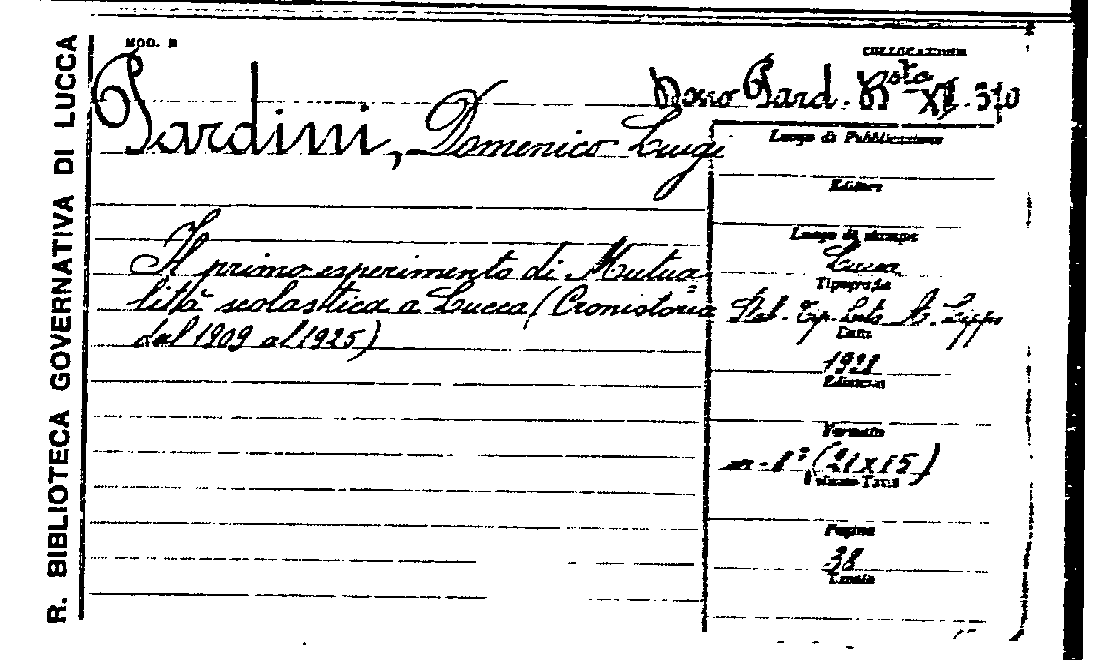 R. BIBLIOTECA GOVERNATIVA DI LUCCA
MOD. B
COLLOCAZIONE
Dono Pard. Bsta XI. 310
Pardini, Domenico Luigi
Il primo esperimento di Mutua=
lità scolastica a Lucca (Cronistoria
dal 1909 al 1925)
Luogo di Pubblicazione
Editore
Luogo di stampa
Lucca
Tipografia
Tip.
Data
1928
Edizione
Formato
in-8° (21x15)
Volume-Tomi
Pagine
38
Tavole